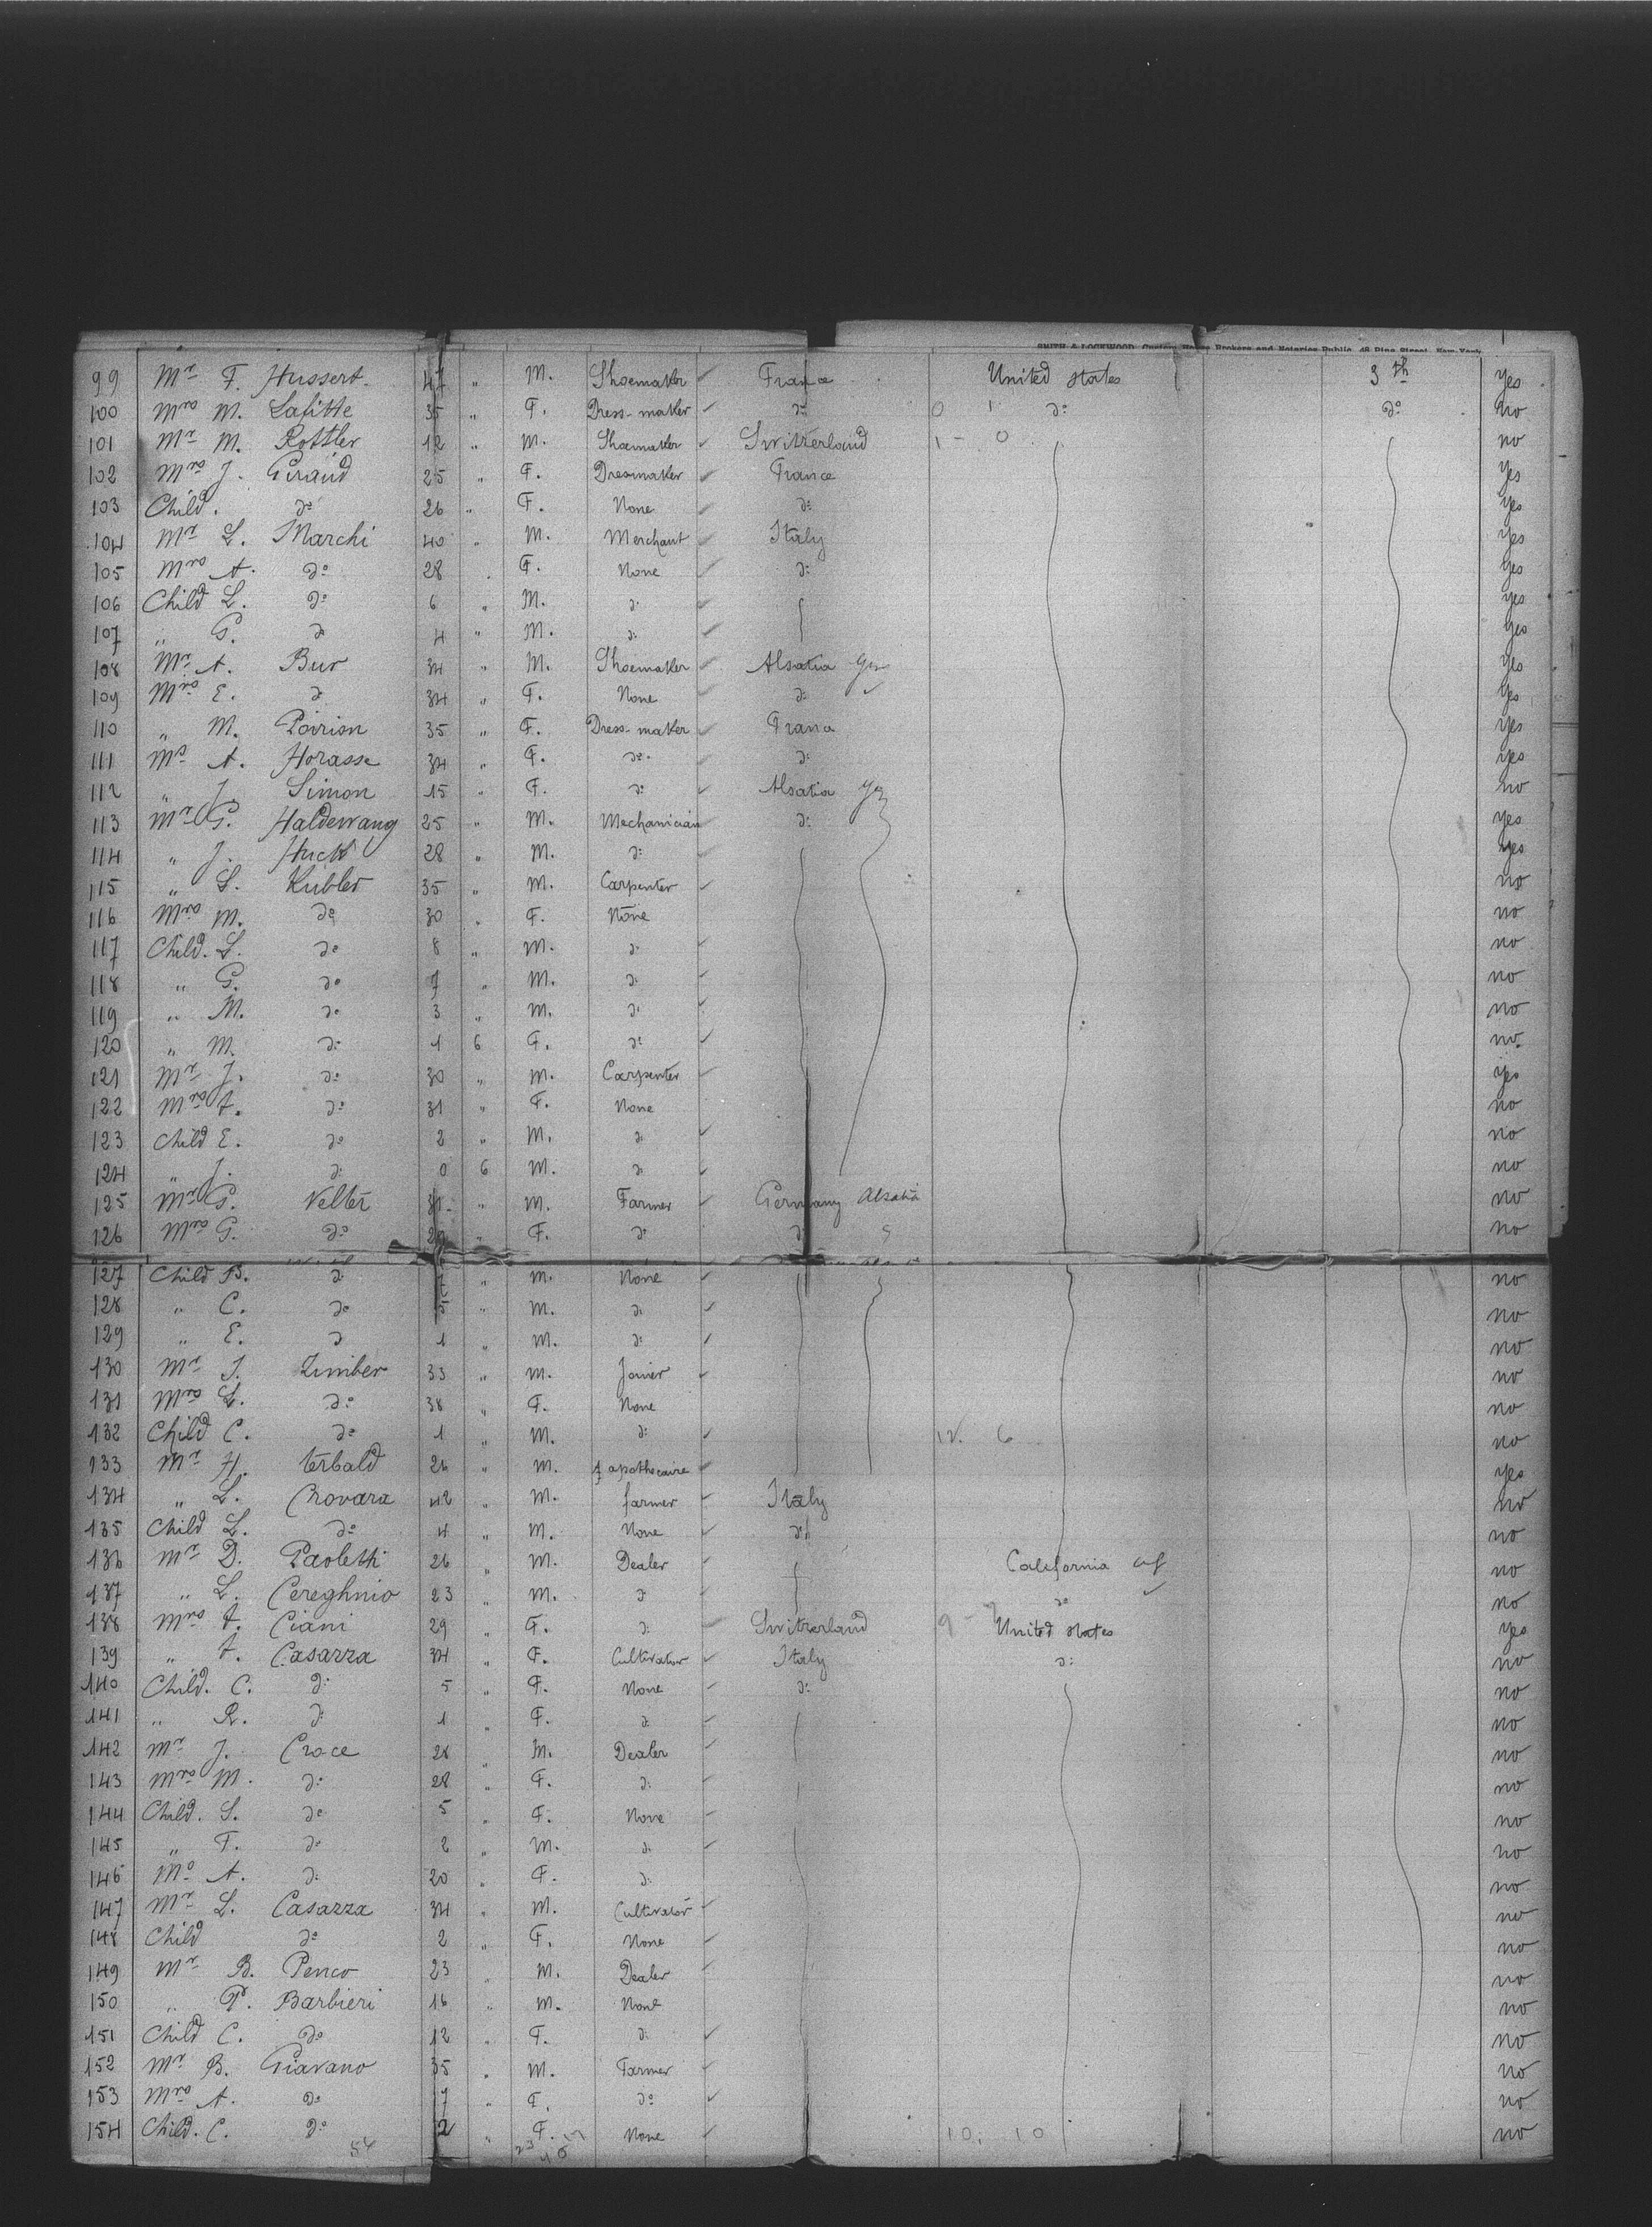 SMITH & LOCKWOOD, Custom House Brokers and Notaries Public, 48 Pine Street, New York
99 Mr F. Hussert. 47 " M. Shoemaker France United States 3th yes
100 Mrs M. Lafitte 35 " F. Dress-maker do 0 1 do do no
101 Mr M. Rottler 12 " M. Shoemaker Switzerland 1 - 0 no
102 Mrs J. Giraud 25 " F. Dressmaker France yes
103 Child. do 26 " F. None do yes
104 Mr L. Marchi 40 " M. Merchant Italy yes
105 Mrs A. do 28 . F. None do yes
106 Child L. do 6 " M. do yes
107 " G. do 4 " M. do yes
108 Mr A. Bur 34 " M. Shoemaker Alsatia Ger yes
109 Mrs E. do 34 " F. None do yes
110 " M. Poirion 35 " F. Dress-maker France yes
111 Ms A. Horasse 34 " F. do do yes
112 " J. Simon 15 " F. do Alsatia Ger no
113 Mr G. Haldewang 25 " M. Mechanician do yes
114 " J. Huck 28 " M. do yes
115 " L. Kubler 35 " M. Carpenter no
116 Mrs M. do 30 " F. None no
117 Child. L. do 8 " M. do no
118 " G. do 7 " M. do no
119 " M. do 3 " M. do no
120 " M. do 1 6 F. do no.
121 Mr J. do 30 " M. Carpenter yes
122 Mrs A. do 31 " F. None no
123 Child E. do 2 " M. do no
124 " J. do 0 6 M. do no
125 Mr G. Velter 31 " M. Farmer Germany Alsatia no
126 Mrs G. do 29 " F. do do no
127 Child B. do " M. None no
128 " C. do 5 " M. do no
129 " E. do 1 " M. do no
130 Mr J. Zimber 33 " M. Joiner no
131 Mrs L. do 38 " F. None no
132 Child C. do 1 " M. do 12. 6 no
133 Mr H. Terbald 26 " M. apothecaire yes
134 " L. Chovara 42 " M. farmer Italy no
135 Child L. do 4 " M. None do no
136 Mr D. Paoletti 26 " M. Dealer California no
137 " L. Cereghnio 23 " M. do do no
138 Mrs A. Ciani 29 " F. do Switzerland 9 - United States yes
139 " A. Casazza 34 " F. Cultivator Italy do no
140 Child. C. do 5 " F. None do no
141 " R. do 1 " F. do no
142 Mr J. Croce 28 " M. Dealer no
143 Mrs M. do 28 " F. do no
144 Child. S. do 5 " F. None no
145 " F. do 2 " M. do no
146 Ms A. do 20 " F. do no
147 Mr L. Casazza 34 " M. Cultivator no
148 Child do 2 " F. None no
149 Mr B. Penco 23 " M. Dealer no
150 " P. Barbieri 16 " M. None no
151 Child C. do 12 " F. do no
152 Mr B. Giavano 35 " M. Farmer no
153 Mrs A. do 7 " F. do no
154 Child. C. do 2 " F. None 10. 10 no
54 23